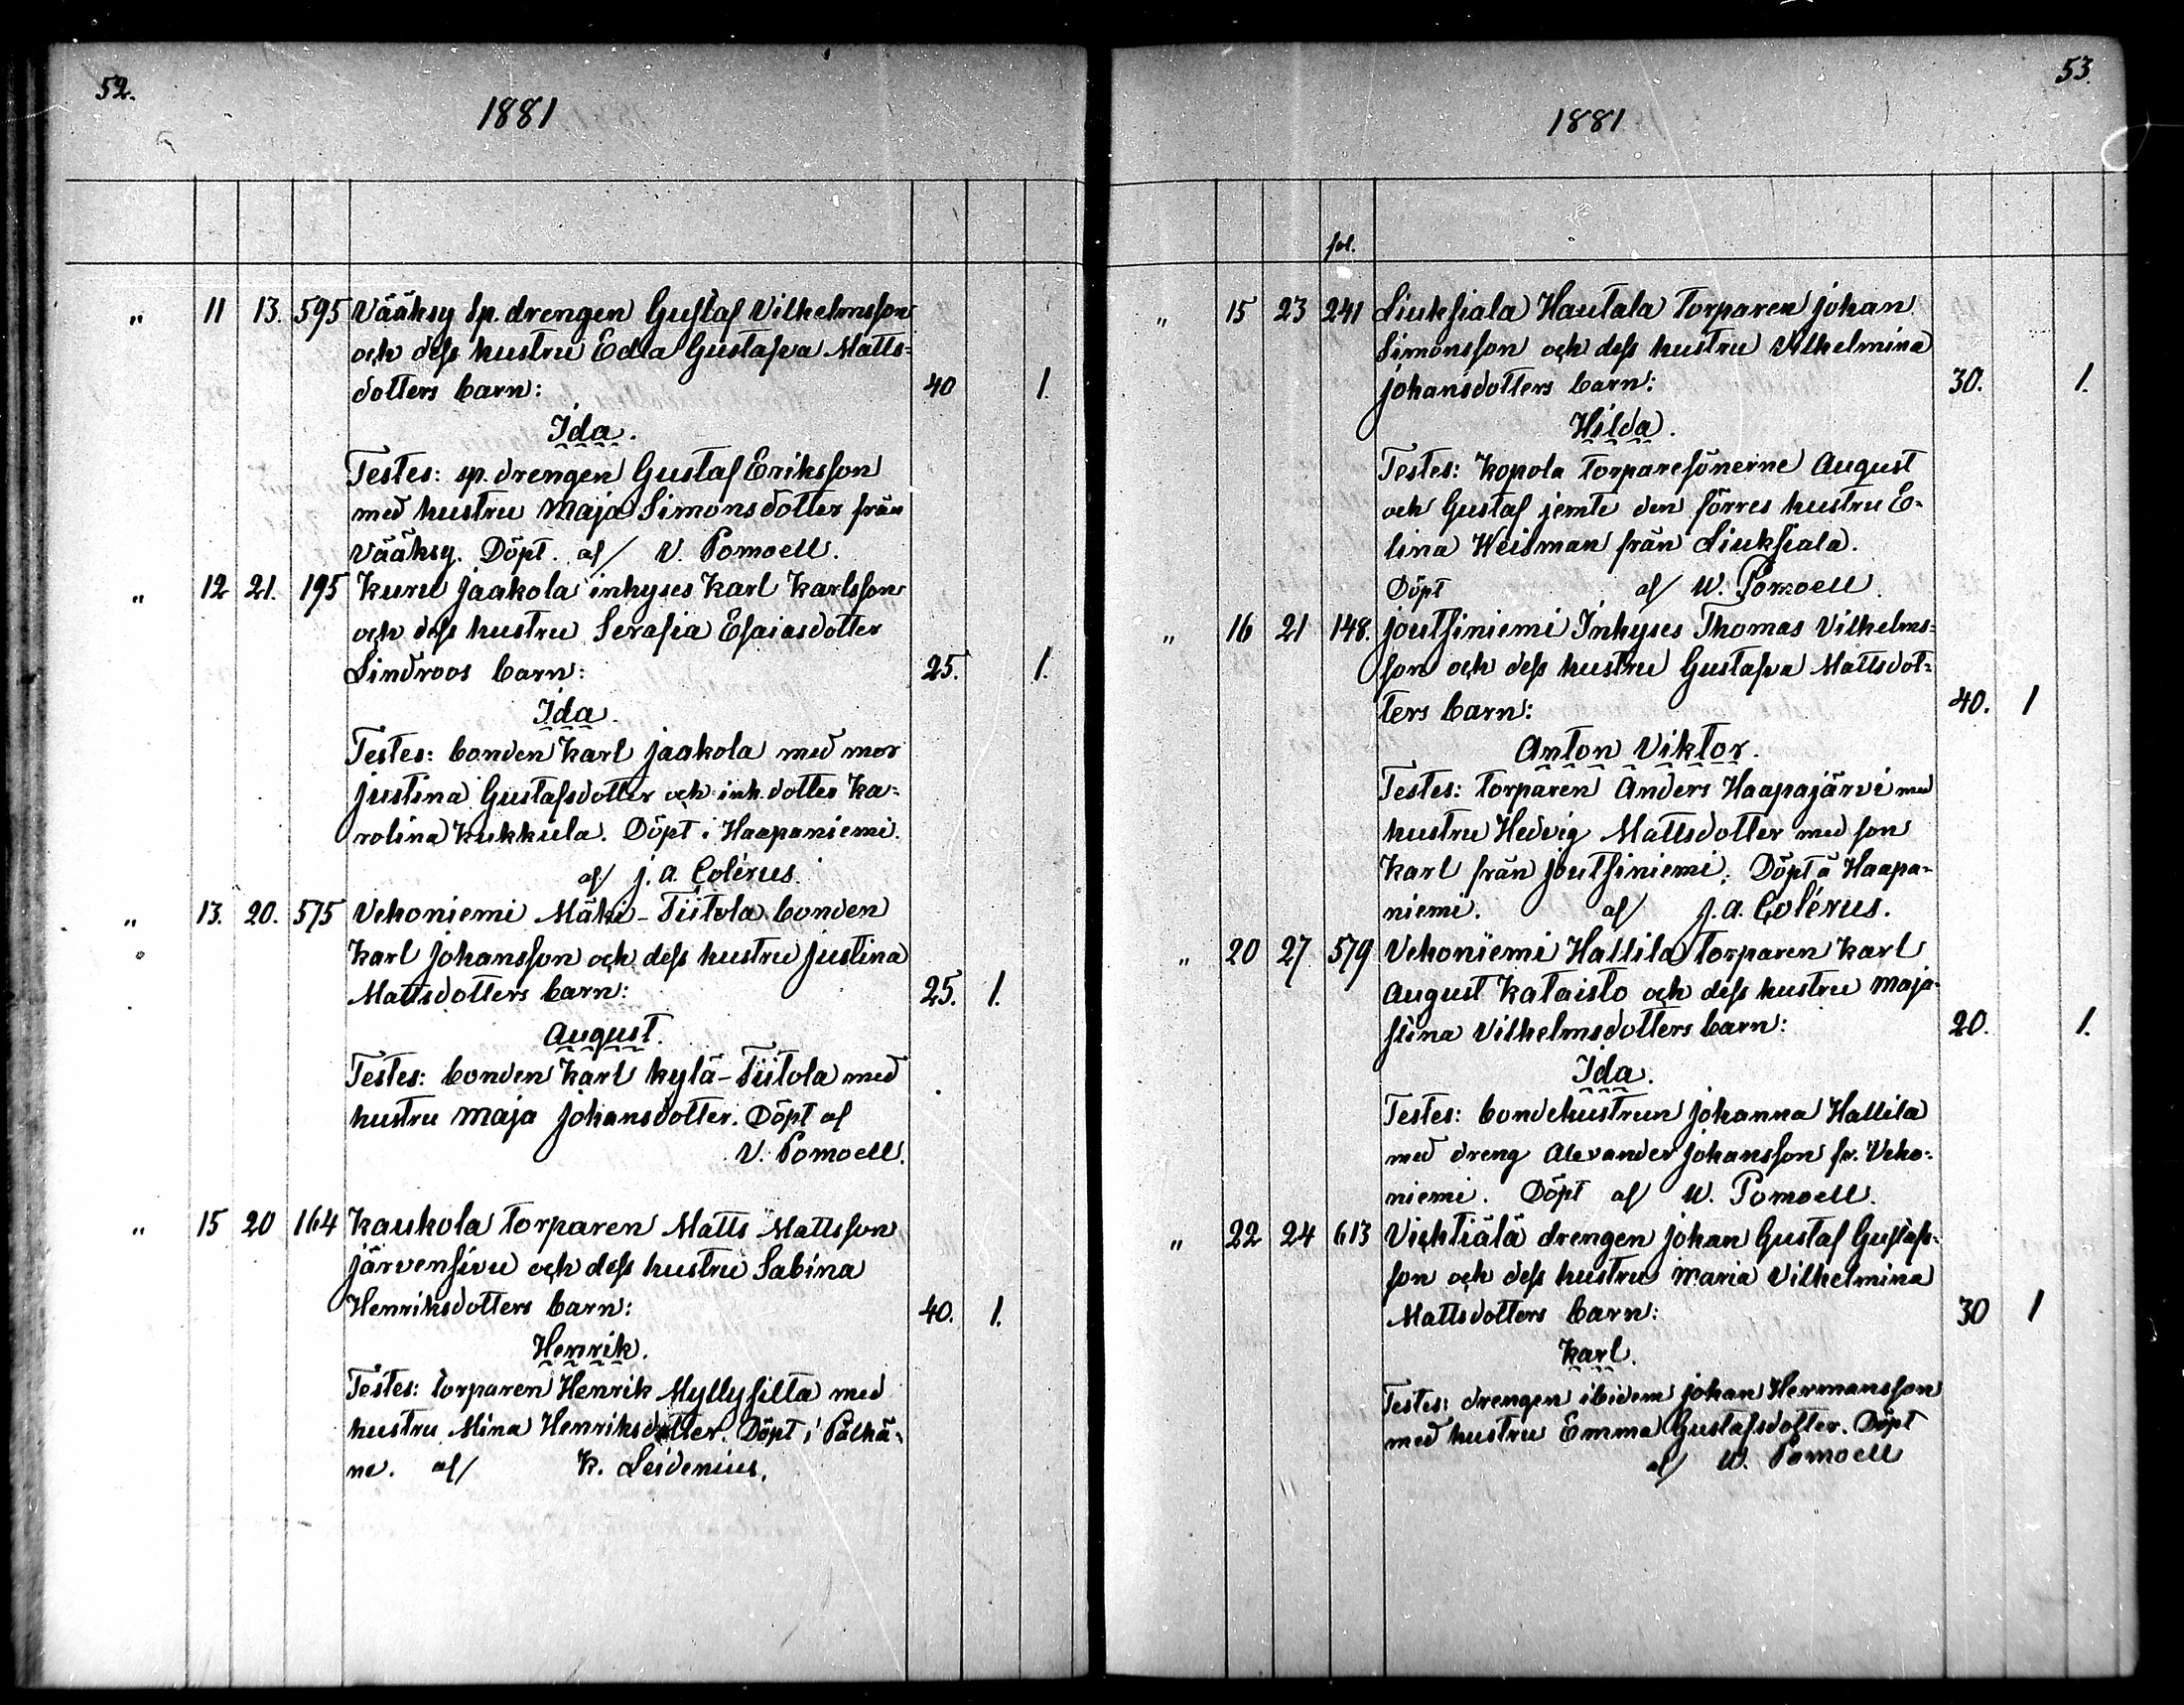 52.
1881
" 11 13. 595 Vääksy Sp. drengen Gustaf Vilhelmsson
och dess hustru Eda Gustafva Matts-
dotters barn: 40 1.
Ida.
Testes: sp. drengen Gustaf Eriksson
med hustru Maja Simonsdotter från
Vääksy. Döpt. af V. Pomoell.
" 12 21. 195 Kuru Jaakola inhyses Karl Karlsson
och dess hustru Serafia Esaiasdotter
Lindroos barn: 25. 1.
Ida.
Testes: bonden Karl Jaakola med mor
Justina Gustafsdotter och inh. dotter Ka-
rolina Kukkula. Döpt i Haapaniemi.
af J. A. Colérus.
" 13. 20. 575 Vehoniemi Mäki-Tiitola bonden
Karl Johansson och dess hustru Justina
Mattsdotters barn: 25. 1.
August.
Testes: bonden Karl Kylä-Tiitola med
hustru Maja Johansdotter. Döpt af
V. Pomoell.
" 15 20 164 Kaukola Torparen Matts Mattsson
Järvensivu och dess hustru Sabina
Henriksdotters barn: 40. 1.
Henrik.
Testes: torparen Henrik Myllysilta med
hustru Mina Henriksdotter. Döpt i Pälkä-
ne. af K. Leidenius.
53.
1881
fol.
" 15 23 241 Liuksiala Hautala Torparen Johan
Simonsson och dess hustru Vilhelmina
Johansdotters barn: 30. 1.
Hilda.
Testes: Kopola Torparesönerne August
och Gustaf jemte den förres hustru E-
lina Weisman från Liuksiala.
Döpt af W. Pomoell.
" 16 21 148. Joutsiniemi Inhyses Thomas Vilhelms-
son och dess hustru Gustafva Mattsdot-
ters barn: 40. 1
Anton Viktor.
Testes: Torparen Anders Haapajärvi med
hustru Hedvig Mattsdotter med son
Karl från Joutsiniemi. Döpt å Haapa-
niemi. af J. A. Colérus.
" 20 27 579 Vehoniemi Hallila Torparen Karl
August Kataisto och dess hustru Maja-
stina Vilhelmsdotters barn: 20. 1.
Ida.
Testes: bondehustrun Johanna Hallila
med dreng Alexander Johansson fr. Veho-
niemi. Döpt af W. Pomoell.
" 22 24 613 Vichtiälä drengen Johan Gustaf Gustafs-
son och dess hustru Maria Vilhelmina
Mattsdotters barn: 30 1
Karl.
Testes: drengen ibidem Johan Hermansson
med hustru Emma Gustafsdotter. Döpt
af W. Pomoell